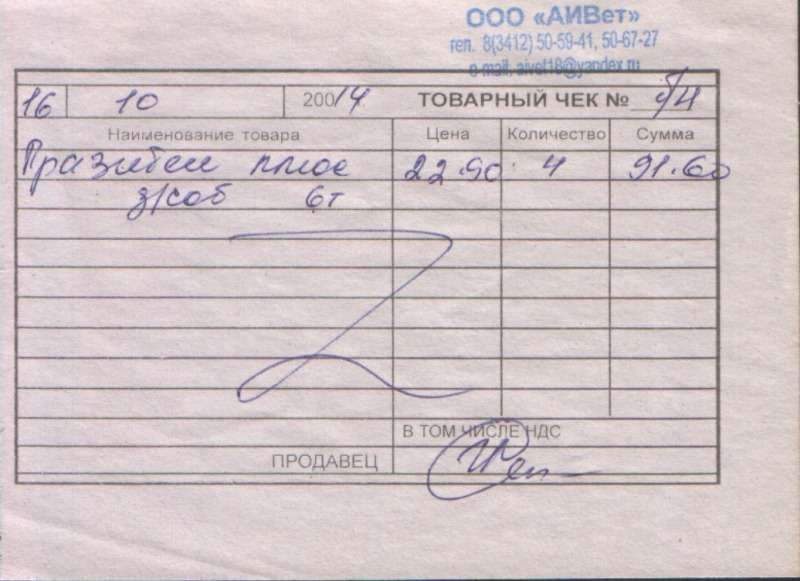 ООО «АИВет»
тел. 8(3412) 50-59-41, 50-67-27
e-mail: aivet18@yandex.ru
16 10 200 14 ТОВАРНЫЙ ЧЕК № б/н
Наименование товара Цена Количество Сумма
Празител плюс 22.90 4 91.60
д/соб 6т
В ТОМ ЧИСЛЕ НДС
ПРОДАВЕЦ